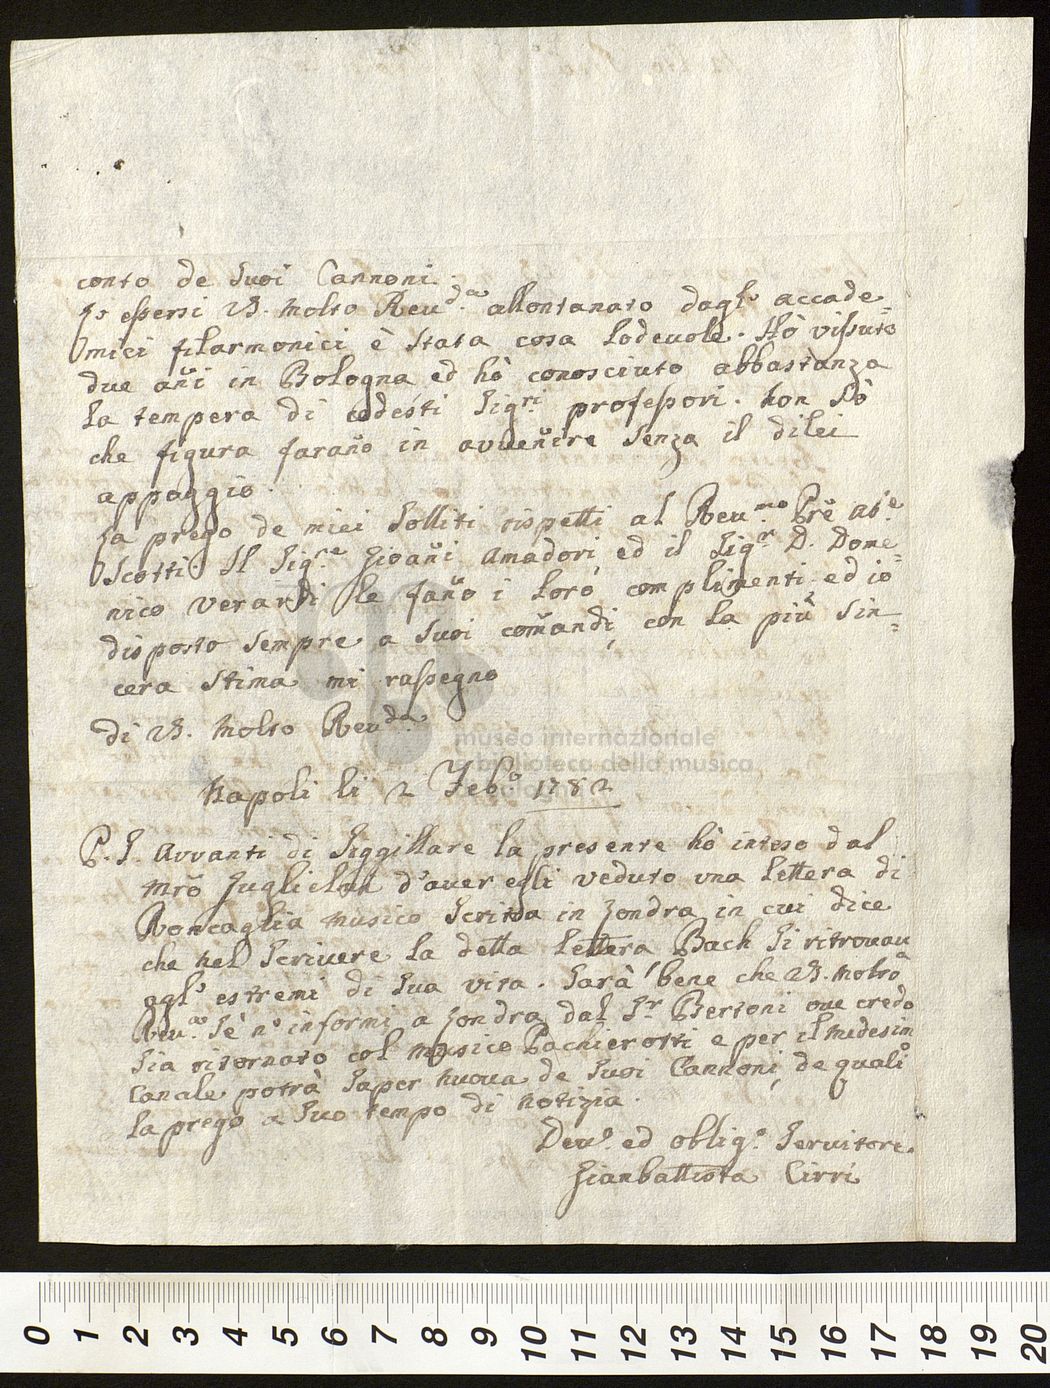 conto de Suoi Cannoni.
Jo essersi VS. Molto Reu.da allontanato dagl.i accade=
mici filarmonici è Stata cosa Lodeuole. Hò vissuto
due añi in Bologna ed hò conosciuto abbastanza
La tempera di codesti Sig.ri professori. Non Sò
che figura farañо in avveñire Senza il dilei
appoggio.
La prego de miei Solliti rispetti al Reu.mo Prẽ Ab.e
Scotti. Il Sig.re Gioañi Amadori, ed il Sig.r D. Dome=
nico Verardi le fañо i Loro complimenti ed io
disposto Sempre a Suoi com̃andi, con La più Sin=
cera Stima mi rassegno
di VS. Molto Reu.da
Napoli li 2 Feb.o 1782
P.S. Avvanti di Siggillare la presente hò inteso dal
Mrõ Guglielmi d'auer egli Veduto una Lettera di
Roncaglia Musico Scritta in Londra in cui dice
che nel Scriuere La detta Lettera Bach Si ritrouau
agl.i estremi di Sua vita. Sarà bene che VS. Molto
Reu.da Sè n'informi a Londra dal S.r Bertoni oue credo
Sia ritornato col Musico Pachierotti e per il medesim
Canale potrà Saper nuoua de Suoi Cannoni, de quali
La prego a Suo tempo di Notizia.
Deu.o ed oblig.o Seruitore
Gianbattista Cirri
museo internazionale
e biblioteca della musica
0 1 2 3 4 5 6 7 8 9 10 11 12 13 14 15 16 17 18 19 20